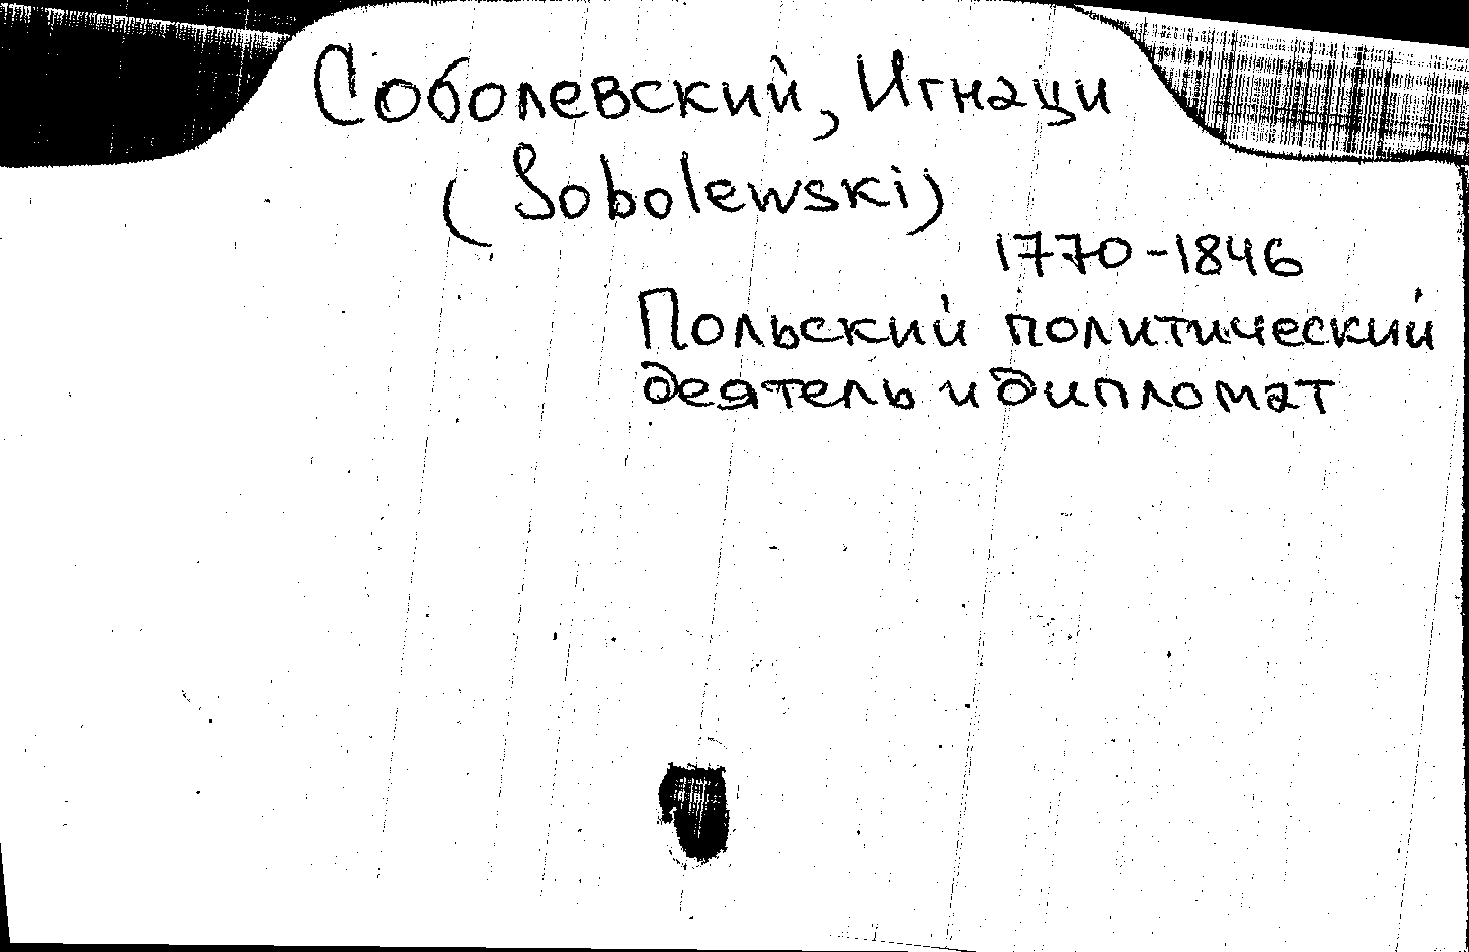 Соболевский, Игнаци
(Sobolewski)
1770-1846
Польский политический
деятель и дипломат